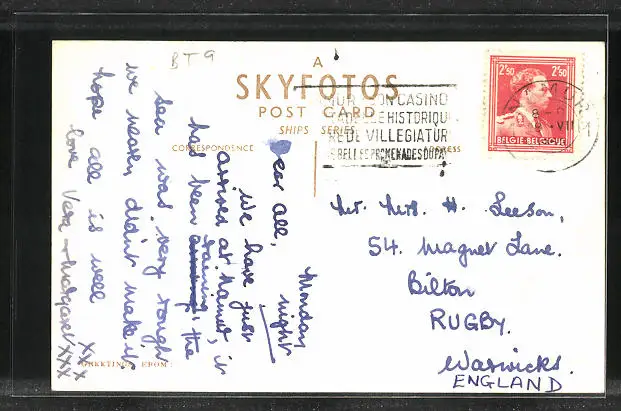 BT 9
A
SKYFOTOS
POST CARD
SHIPS SERIES
CORRESPONDENCE
ADDRESS
Monday
night
Dear all,
We have just
arrived at Namur, it
had been raining the
sea was very rough
we heaven didn't make it
hope all is well
love Vera & Margaret xxx
xx
GREETINGS FROM:
SON CASINO
HISTORIQUE
VILLEGIATUR
PROMENADES
NAMUR
2'50 2'50
BELGIE-BELGIQUE
Mr. Mrs. H. Leeson,
54. Magnet Lane.
Bilton
RUGBY.
Warwicks.
ENGLAND